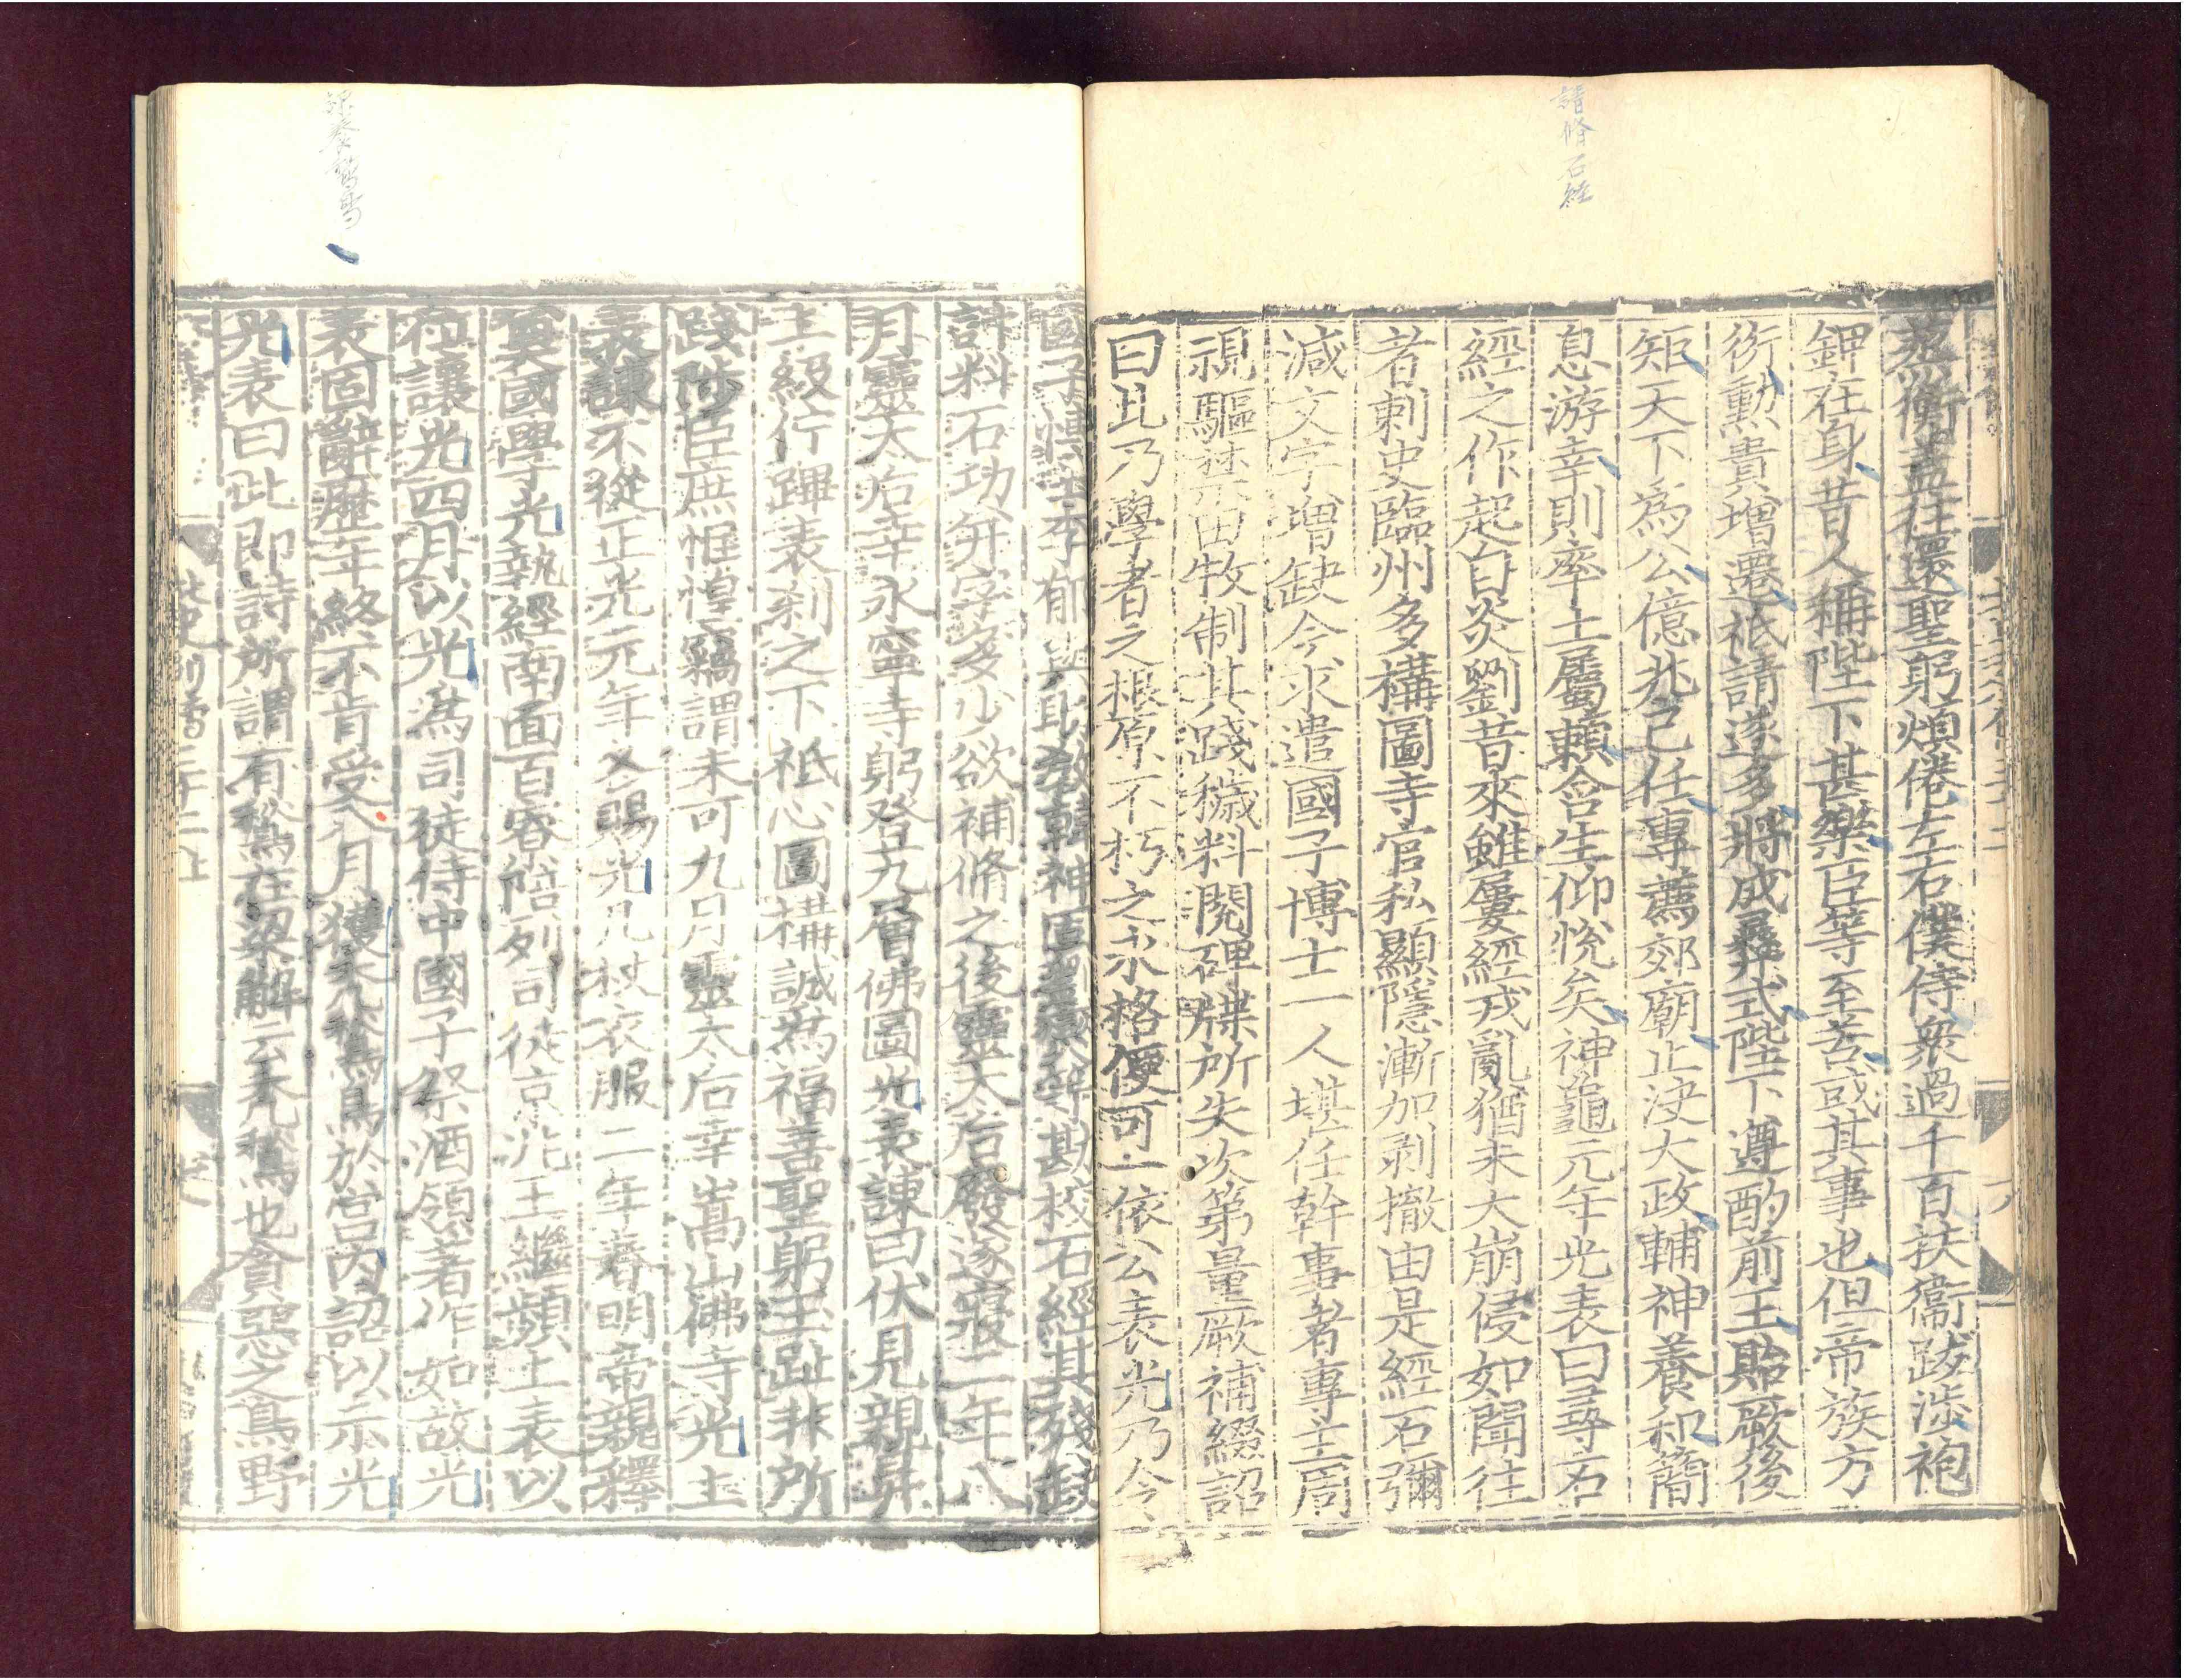 請脩石經
蒸衡蓋往還聖躬煩倦左右僕侍衆過千百扶衞跋涉袍
鉀在身昔人稱陛下甚樂臣等至苦或其事也但帝族方
衍勳貴增遷祗請遂多將成彝式陛下遵酌前王貽厥後
矩天下爲公億兆己任專薦郊廟止决大政輔神養和簡
息游幸則率土屬賴含生仰恱矣神龜元年光表曰尋石
經之作起自炎劉昔來雖屢經戎亂猶未大崩侵如聞往
者刺史臨州多構圖寺官私顯隱漸加剥撤由是經石彌
減文字增缺今求遣國子博士一人堪任幹事者專主周
視驅禁田牧制其踐穢料閱碑牒所失次第量厥補綴詔
曰此乃學者之根原不朽之永格便可一依公表光乃令
國子博士李郁與助教韓神固劉爕等勘校石經其殘缺
計料石功并字多少欲補脩之後靈太后廢遂寢二年八
月靈太后幸永寧寺躬登九層佛圖光表諫曰伏見親昇
上級佇蹕表刹之下祗心圖構誠爲福善聖躬玉趾非所
踐陟臣庶惟惶竊謂未可九月靈太后幸嵩山佛寺光上
表諫不從正光元年冬賜光几杖衣服二年春明帝親釋
奠國學光執經南面百寮陪列司徒京兆王繼頻上表以
位讓光四月以光爲司徒侍中國子祭酒領著作如故光
表固辭歷年終不肯受八月獲禿鶖鳥於宮內詔以示光
光表曰此即詩所謂有鶖在梁解云禿鶖也貪惡之鳥野
北史列傳三十二